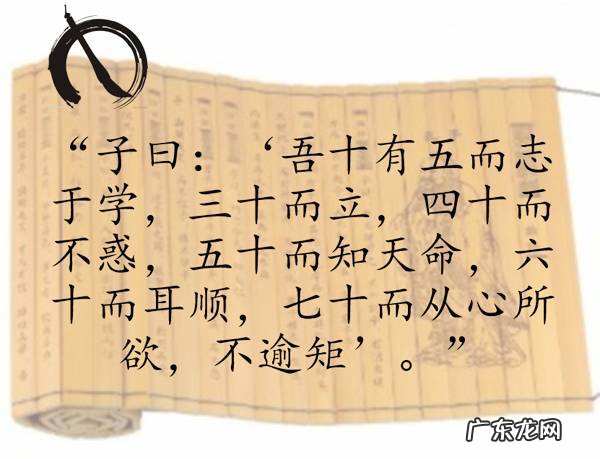 “子曰：‘吾十有五而志
于学，三十而立，四十而
不惑，五十而知天命，六
十而耳顺，七十而从心所
欲，不逾矩’。”
广东龙网